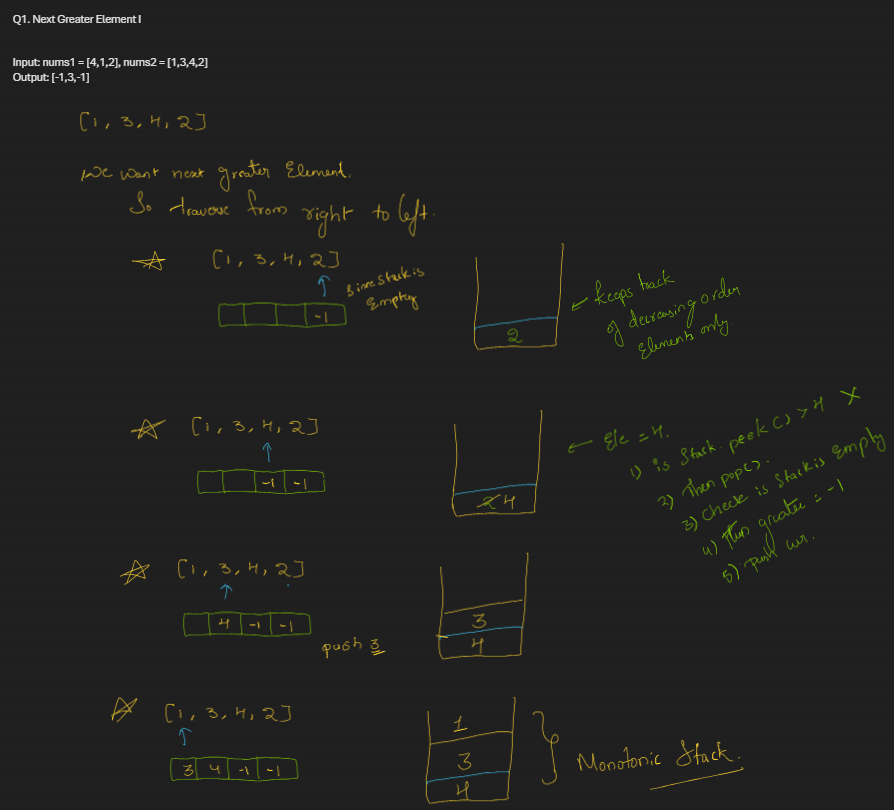 Q1. Next Greater Element I
Input: nums1 = [4,1,2], nums2 = [1,3,4,2]
Output: [-1,3,-1]
[1, 3, 4, 2]
We want next greater Element.
So traverse from right to left.
[1, 3, 4, 2]
Since stack is
Empty
-1
2
Keeps track
of decreasing order
Elements only.
[1, 3, 4, 2]
-1 -1
2 4
Ele = 4.
1) is Stack. peek() > 4 X
2) Then pop().
3) Check is Stack is Empty
4) Then greater = -1
5) push cur.
[1, 3, 4, 2]
4 -1 -1
push 3
3
4
[1, 3, 4, 2]
3 4 -1 -1
1
3
4
Monotonic Stack.